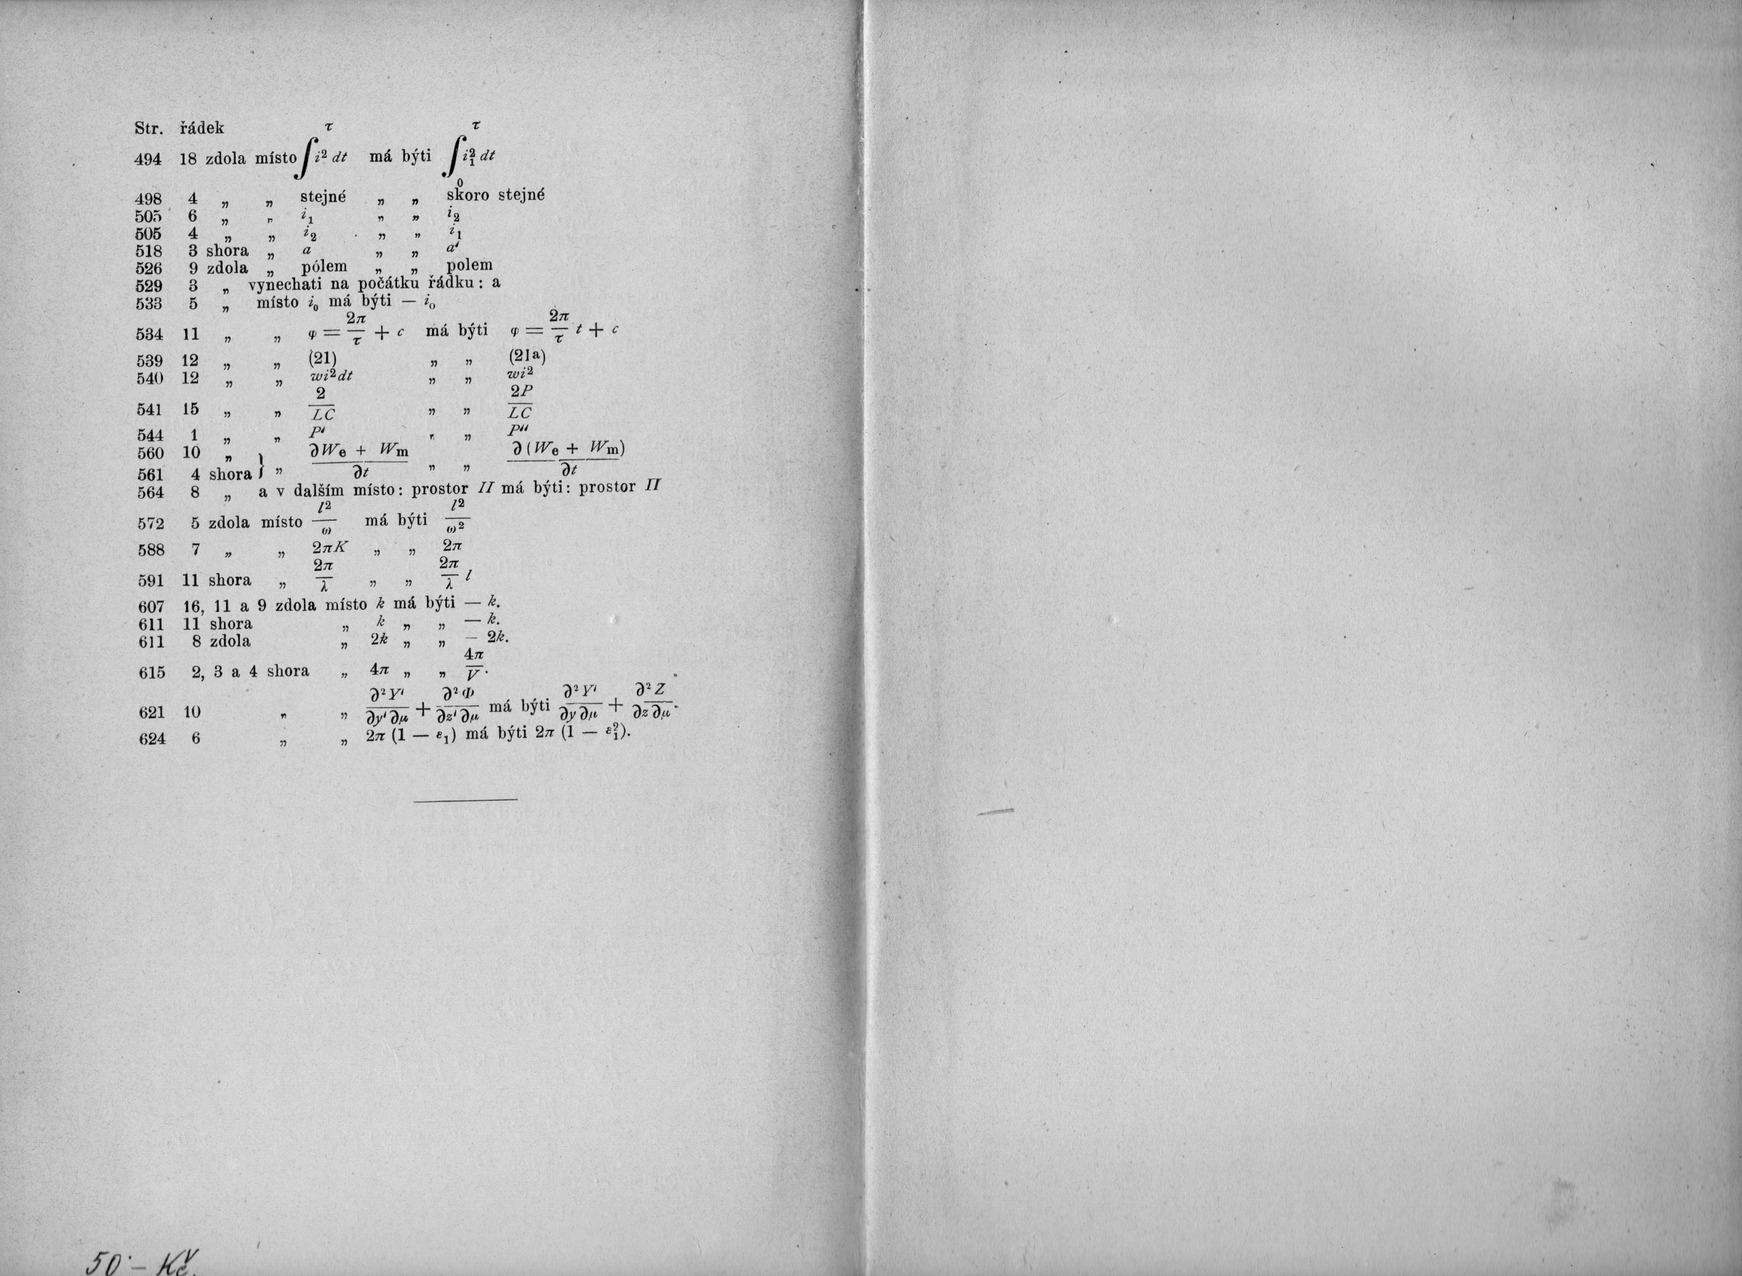 Str. řádek
494 18 zdola místo ∫^τ i² dt má býti ∫₀^τ i₁² dt
498 4 „ „ stejné „ „ skoro stejné
505 6 „ „ i₁ „ „ i₂
505 4 „ „ i₂ „ „ i₁
518 3 shora „ a „ „ a'
526 9 zdola „ pólem „ „ polem
529 3 „ vynechati na počátku řádku: a
533 5 „ místo i₀ má býti — i₀
534 11 „ „ φ = 2π/τ + c má býti φ = 2π/τ t + c
539 12 „ „ (21) „ „ (21a)
540 12 „ „ wi²dt „ „ wi²
541 15 „ „ 2/LC „ „ 2P/LC
544 1 „ „ P' „ „ P''
560 10 „ } ∂We + Wm / ∂t „ „ ∂(We + Wm) / ∂t
561 4 shora } „
564 8 „ a v dalším místo: prostor II má býti: prostor Π
572 5 zdola místo l²/ω má býti l²/ω²
588 7 „ „ 2πK „ „ 2π
591 11 shora „ 2π/λ „ „ 2π/λ l
607 16, 11 a 9 zdola místo k má býti — k.
611 11 shora „ k „ „ — k.
611 8 zdola „ 2k „ „ — 2k.
615 2, 3 a 4 shora „ 4π „ „ 4π/V.
621 10 „ „ ∂²Y'/∂y'∂μ + ∂²Φ/∂z'∂μ má býti ∂²Y'/∂y∂μ + ∂²Z/∂z∂μ.
624 6 „ „ 2π (1 — ε₁) má býti 2π (1 — ε₁²).
50·– Kč.